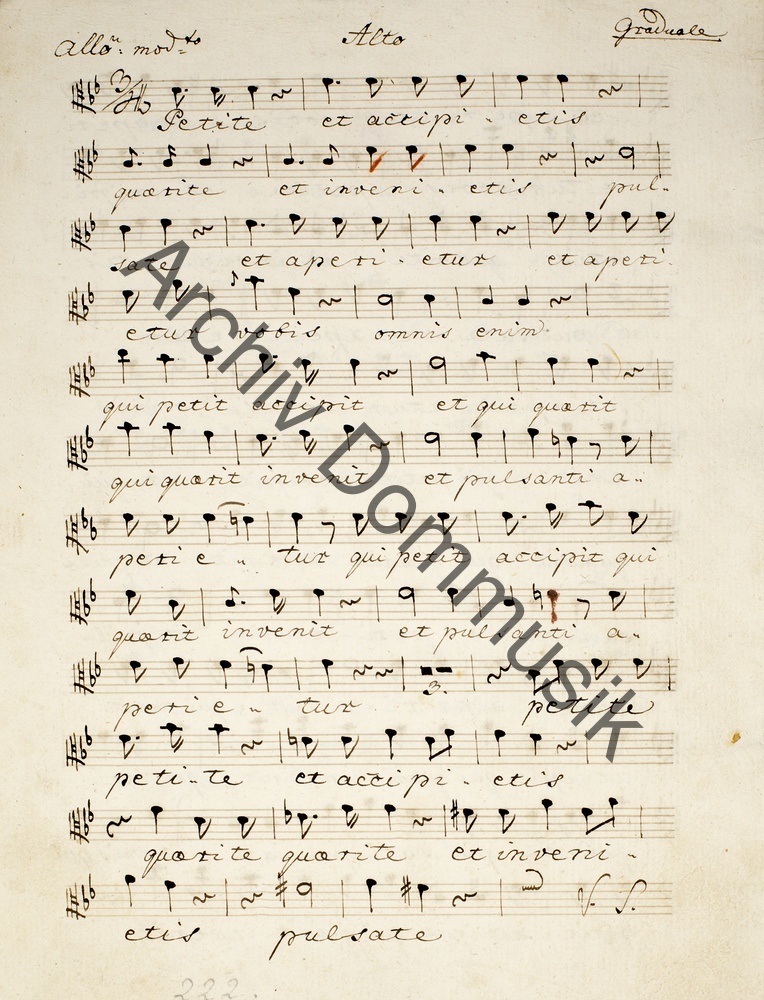 Allo: modto Alto Graduale
Petite et accipi - etis
quærite et inveni - etis pul-
sate et aperi - etur et aperi-
etur vobis omnis enim
qui petit accipit et qui quærit
qui quærit invenit et pulsanti a-
peri e - tur qui petit accipit qui
quærit invenit et pulsanti a-
peri e - tur 3. petite
peti-te et accipi - etis
quærite quærite et inveni -
etis pulsate V. S.
222.
Archiv Dommusik